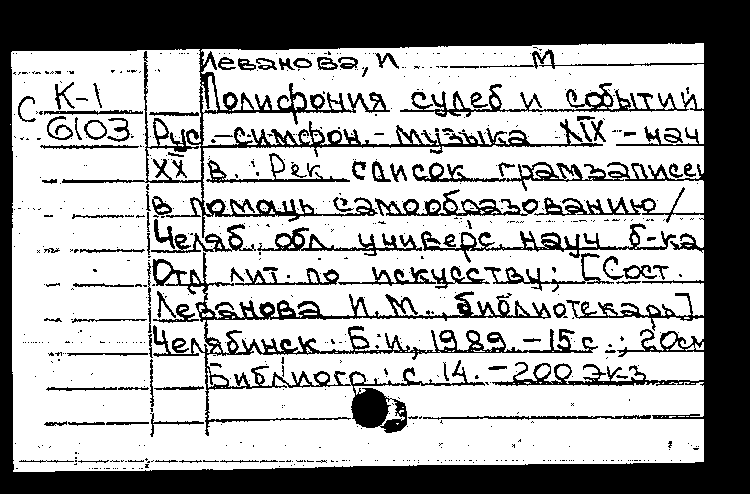 Леванова, И М
Полифония судеб и событий
С К-1
6103
Рус.-симфон.-музыка XIX - нач
XX в. : Рек. список грамзаписей
в помощь самообразованию /
Челяб. обл. универс. науч б-ка
Отд лит. по искусству; [Сост.
Леванова И.М., библиотекарь]
Челябинск : Б.и., 1989. - 15 с. ; 20см
Библиогр.: с. 14. - 200 экз